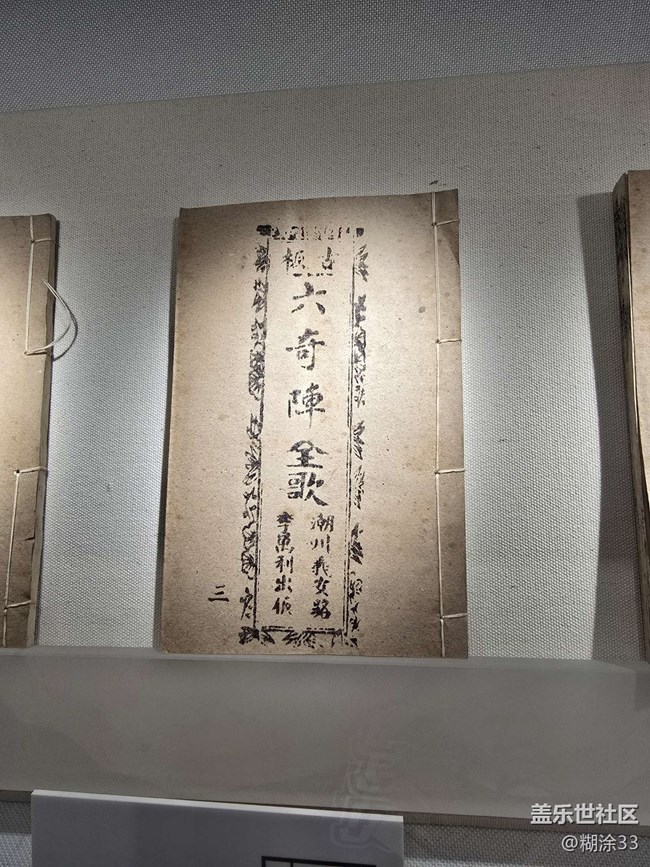 古板
六奇陣全歌
潮州義安路
李萬利出版
三
盖乐世社区
@糊涂33